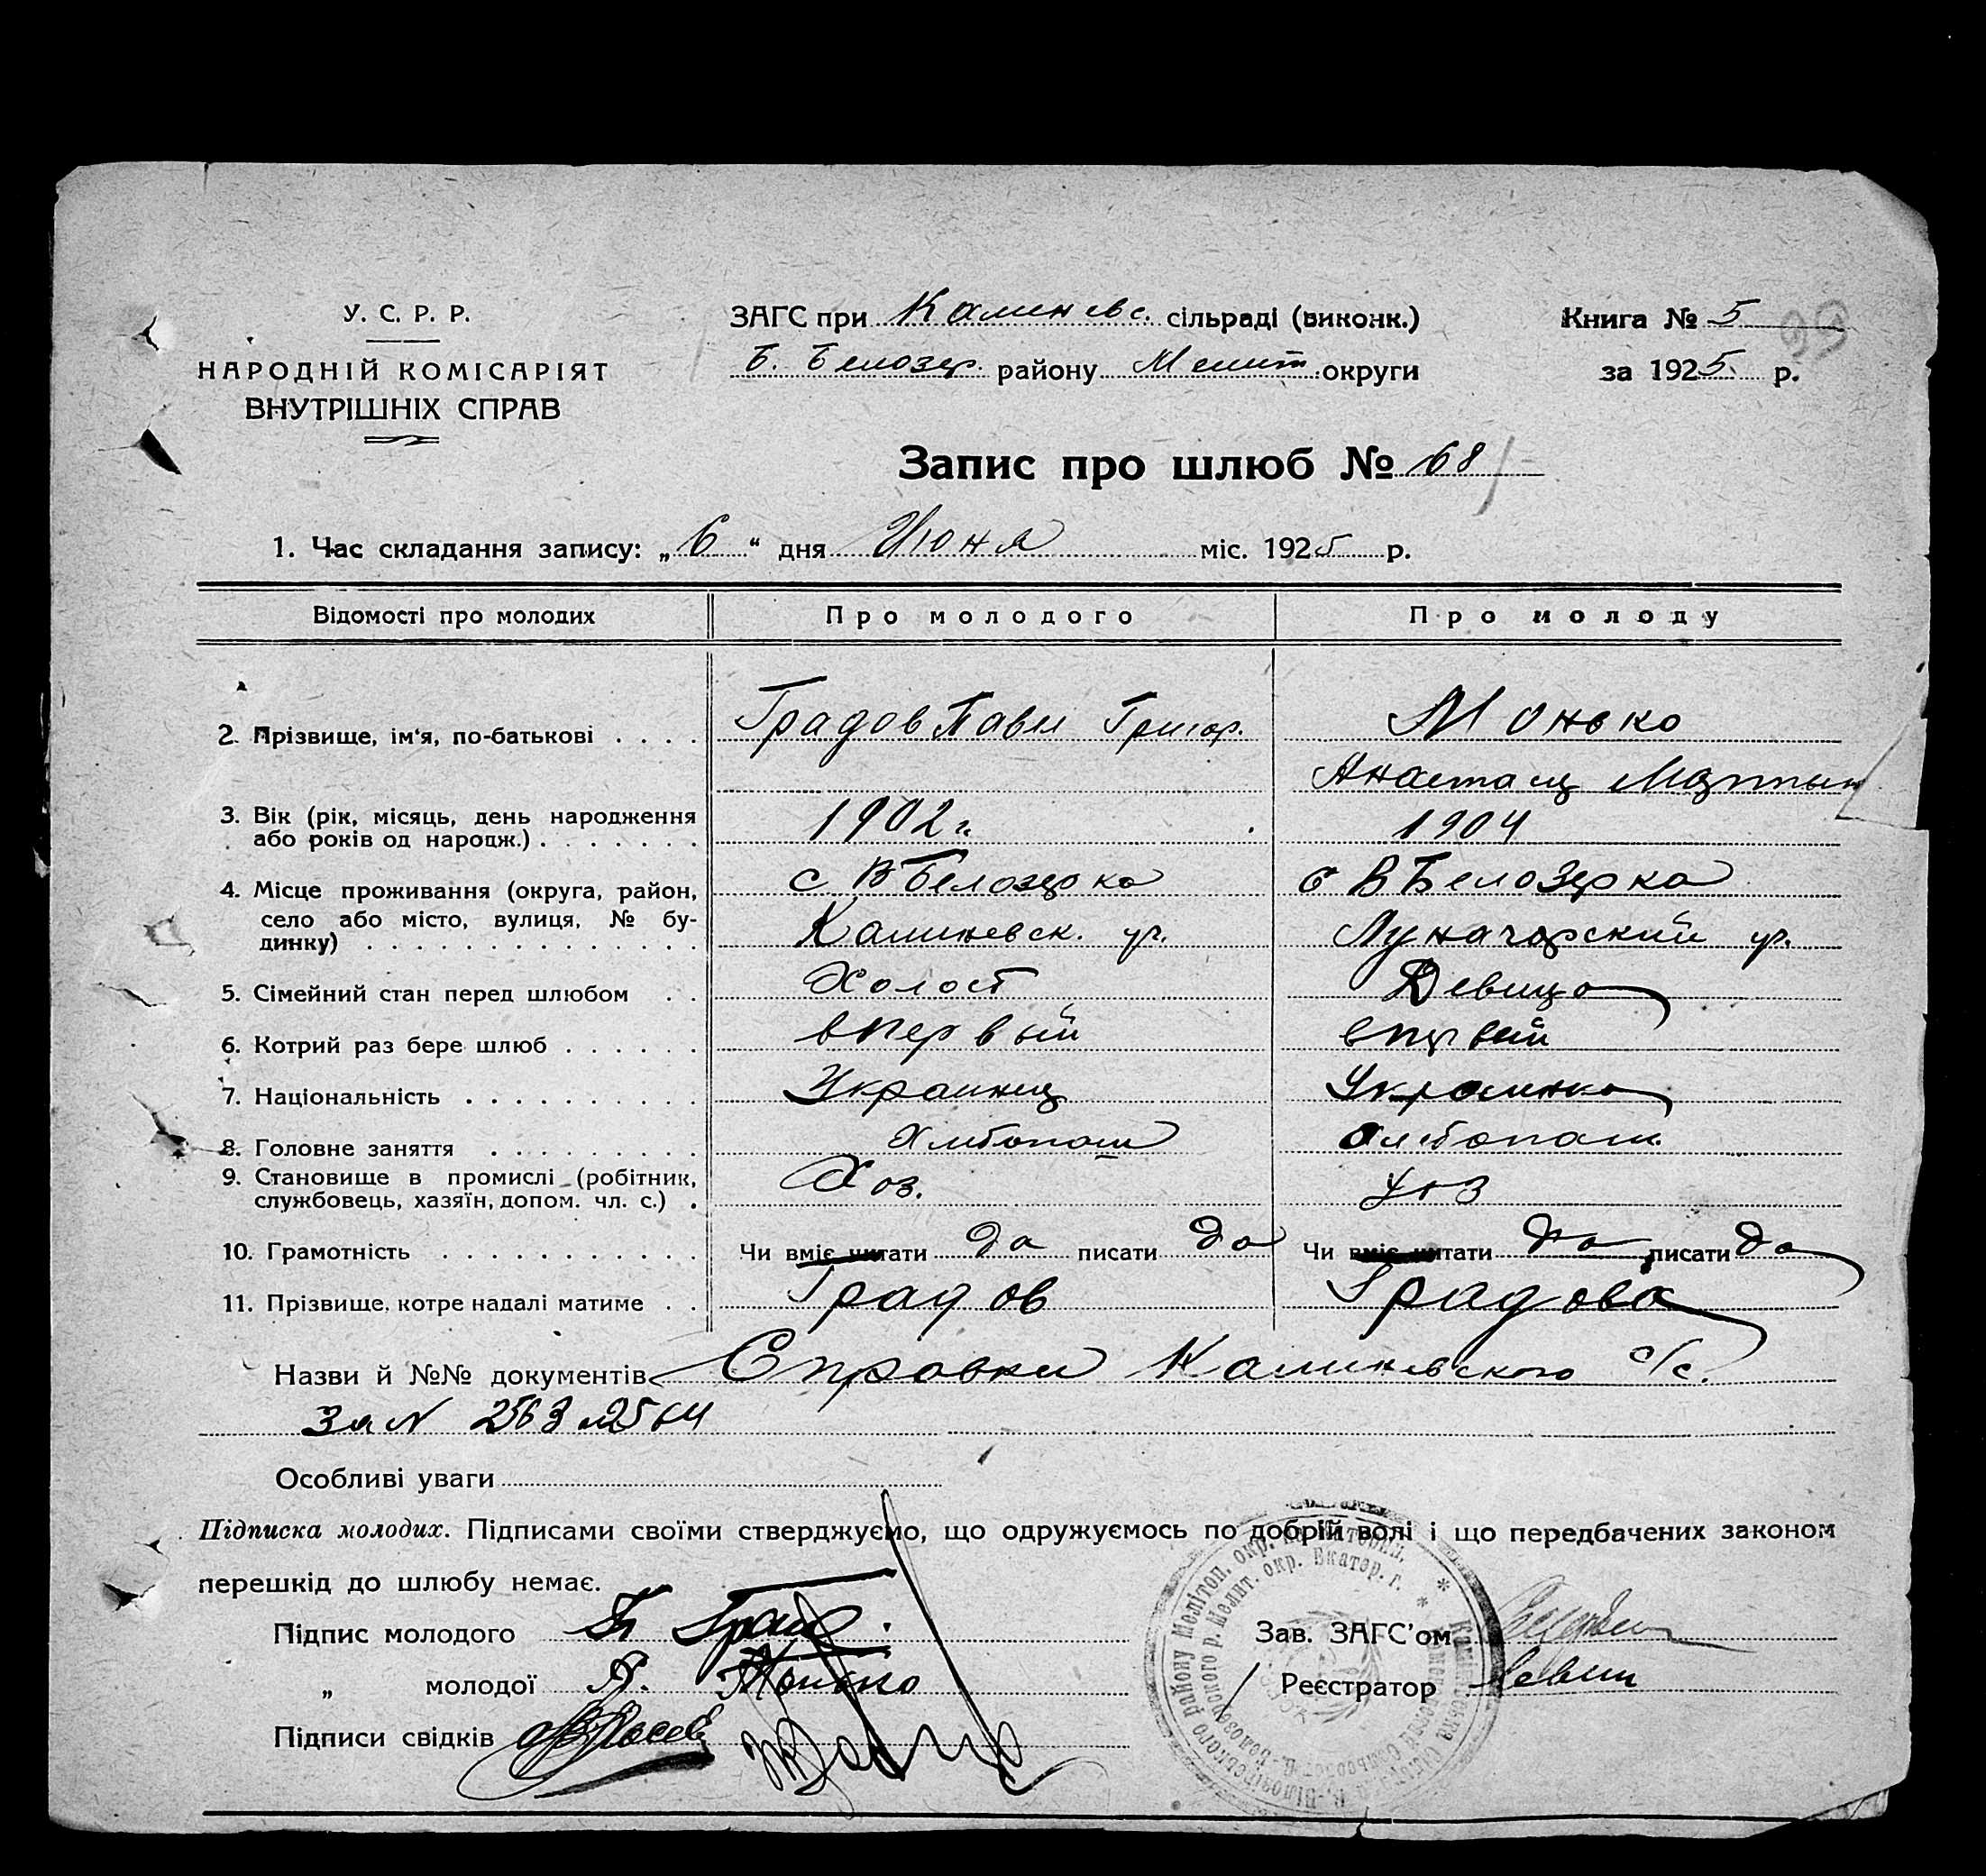 У. С. Р. Р.
НАРОДНІЙ КОМІСАРІЯТ
ВНУТРІШНІХ СПРАВ
ЗАГС при Калиневс. сільраді (виконк.)
Б. Белозер. району Мелит. округи
Книга № 5
за 1925 р.
Запис про шлюб № 68
1. Час складання запису: „6“ дня Июня міс. 1925 р.
Відомості про молодих Про молодого Про молоду
2. Прізвище, ім‘я, по-батькові Градов Павел Григор. Монько
Анастас Мартын
3. Вік (рік, місяць, день народження
або років од народж.) 1902 г. 1904
4. Місце проживання (округа, район, с. В Белозерка с В Белозерка
село або місто, вулиця, № бу-
динку) Калиневск. ур. Луначарский ур.
5. Сімейний стан перед шлюбом Холост Девица
6. Котрий раз бере шлюб впервый впервый
7. Національність Украинец Украинка
8. Головне заняття Хлебопаш Хлебопаш.
9. Становище в промислі (робітник,
службовець, хазяїн, допом. чл. с.) Хоз.
10. Грамотність Чи вміє читати да писати да Чи вміє читати да писати да
11. Прізвище, котре надалі матиме Градов Градова
Назви й №№ документів Справки Калиневского с/с.
За № 2563 и 2564
Особливі уваги
Підписка молодих. Підписами своїми стверджуємо, що одружуємось по добрій волі і що передбачених законом
перешкід до шлюбу немає.
Підпис молодого П Град.
„ молодої А. Монько
Підписи свідків
Зав. ЗАГС’ом
Реєстратор